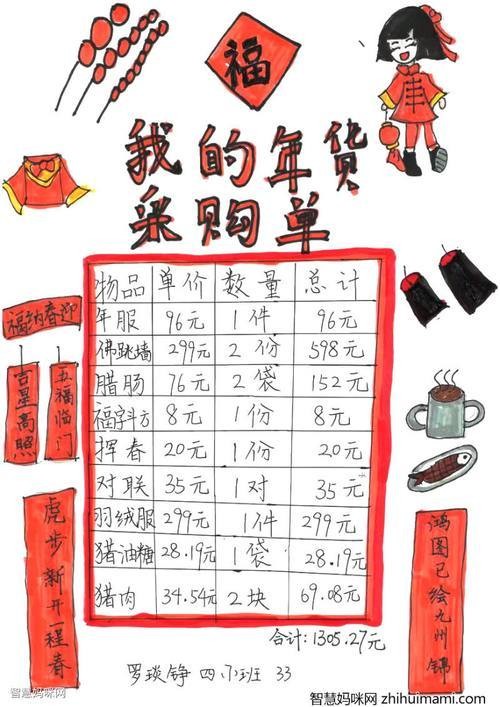 福
我的年货
采购单
物品 单价 数量 总计
年服 96元 1件 96元
佛跳墙 299元 2份 598元
腊肠 76元 2袋 152元
福字斗方 8元 1份 8元
挥春 20元 1份 20元
对联 35元 1对 35元
羽绒服 299元 1件 299元
猎油糖 28.19元 1袋 28.19元
猎肉 34.54元 2块 69.08元
合计:1305.27元
福纳春迎
吉星高照
五福临门
虎步新开一程春
鸿图已绘九州锦
罗琰铮 四(1)班 33
智慧妈咪网
智慧妈咪网 zhihuimami.com